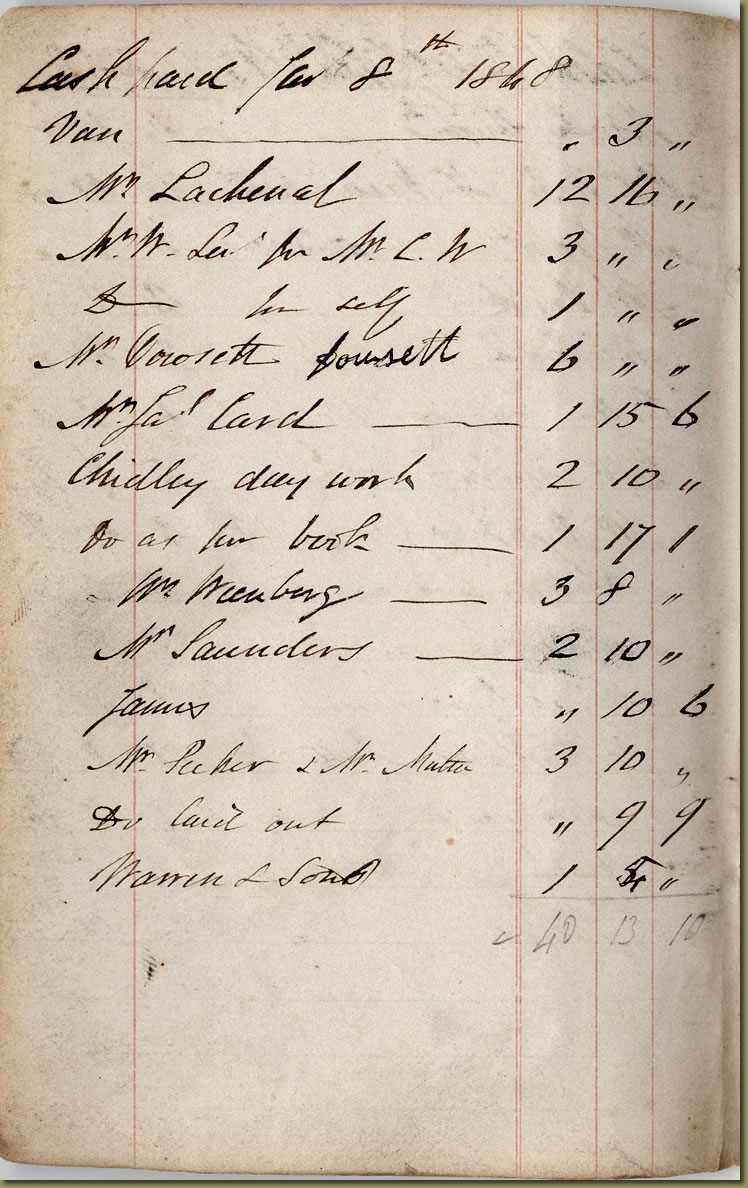 Cash paid Jan 8th 1848
Van — " 3 "
Mr Lachenal 12 16 "
Mr W. for Mr C. W 3 " "
Do for self 1 " "
Mr Dowsett Dowsett 6 " "
Mr Jas Card — 1 15 6
Chidley day work 2 10 "
Do as per book — 1 17 1
Mr — 3 8 "
Mr Saunders — 2 10 "
James " 10 6
Mr & Mr 3 10 "
Do laid out " 9 9
Warren & Sons 1 4 "
40 13 10